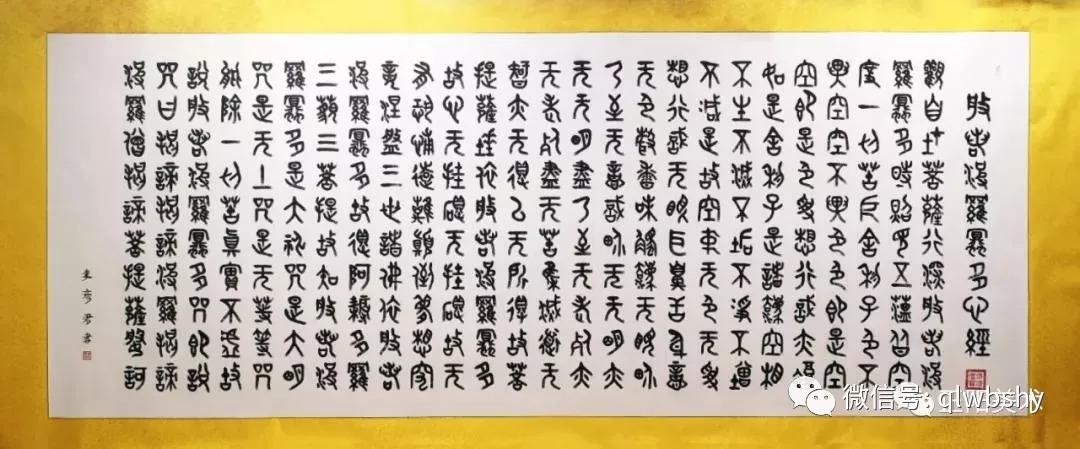 般若波羅蜜多心經
觀自在菩薩行深般若波
羅蜜多時照見五蘊皆空
度一切苦厄舍利子色不
異空空不異色色即是空
空即是色受想行識亦復
如是舍利子是諸法空相
不生不滅不垢不淨不增
不減是故空中无色无受
想行識无眼耳鼻舌身意
无色聲香味觸法无眼界
乃至无意識界无无明亦
无无明盡乃至无老死亦
无老死盡无苦集滅道无
智亦无得以无所得故菩
提薩埵依般若波羅蜜多
故心无挂礙无挂礙故无
有恐怖遠離顛倒夢想究
竟涅槃三世諸佛依般若
波羅蜜多故得阿耨多羅
三藐三菩提故知般若波
羅蜜多是大神咒是大明
咒是无上咒是无等等咒
能除一切苦真實不虛故
說般若波羅蜜多咒即說
咒曰揭諦揭諦波羅揭諦
波羅僧揭諦菩提薩婆訶
彦君書
微信号: qlwbshy